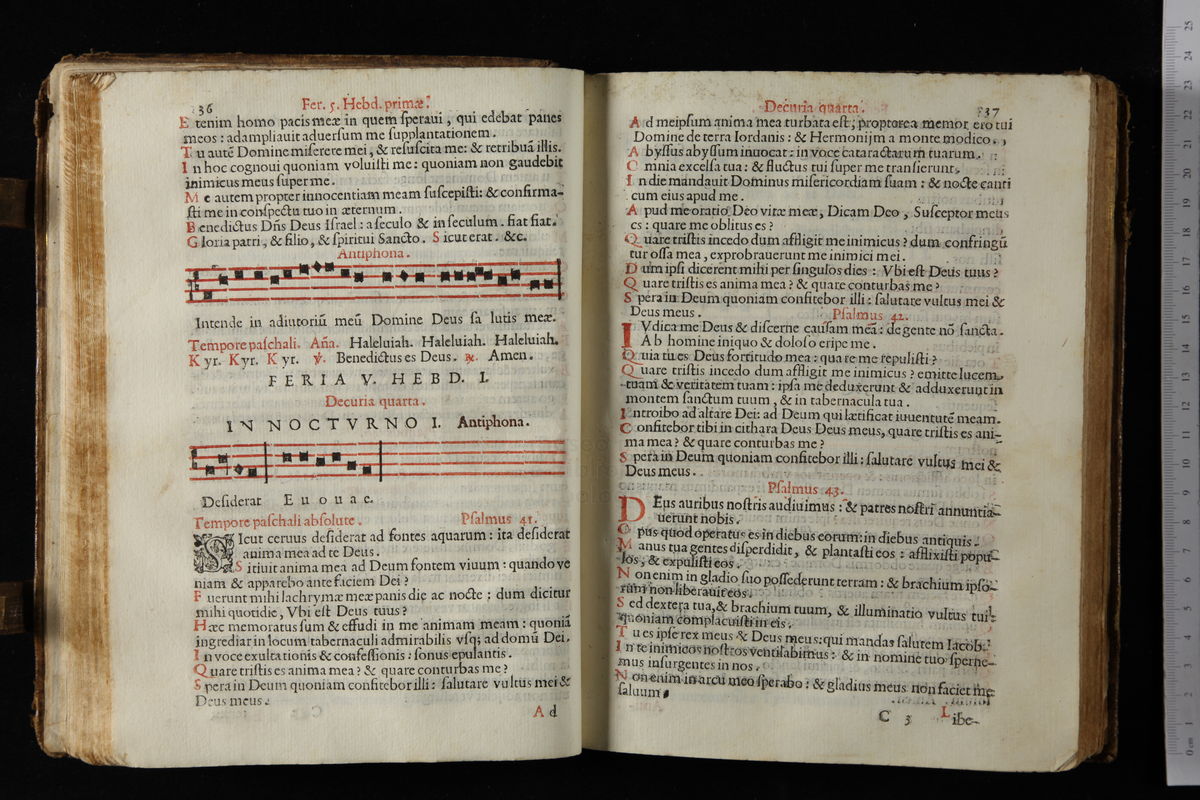 36
Fer. 5. Hebd. primæ.
E tenim homo pacis meæ in quem ſperaui, qui edebat panes
meos: adampliauit aduerſum me ſupplantationem.
T u autẽ Domine miſerere mei, & reſuſcita me: & retribuã illis.
I n hoc cognoui quoniam voluiſti me: quoniam non gaudebit
inimicus meus ſuper me.
M e autem propter innocentiam meam ſuſcepiſti: & confirma-
ſti me in conſpectu tuo in æternum.
B enedictus Dñs Deus Iſrael: a ſeculo & in ſeculum. fiat fiat.
G loria patri, & filio, & ſpiritui Sancto. S icut erat. &c.
Antiphona.
Intende in adiutoriũ meũ Domine Deus ſa lutis meæ.
Tempore paſchali. Aña. Haleluiah. Haleluiah. Haleluiah.
K yr. K yr. K yr. ℣. Benedictus es Deus. ℟. Amen.
FERIA V. HEBD. I.
Decuria quarta.
IN NOCTVRNO I. Antiphona.
Deſiderat E u o u a e.
Tempore paſchali abſolute. Pſalmus 41.
S Icut ceruus deſiderat ad fontes aquarum: ita deſiderat
anima mea ad te Deus.
S itiuit anima mea ad Deum fontem viuum: quando ve
niam & apparebo ante faciem Dei?
F uerunt mihi lachrymæ meæ panis die ac nocte: dum dicitur
mihi quotidie, Vbi eſt Deus tuus?
H æc memoratus ſum & effudi in me animam meam: quoniã
ingrediar in locum tabernaculi admirabilis vſq; ad domũ Dei.
I n voce exultationis & confeſſionis: ſonus epulantis.
Q uare triſtis es anima mea? & quare conturbas me?
S pera in Deum quoniam confitebor illi: ſalutare vultus mei &
Deus meus.
A d
Decuria quarta.
37
A d meipſum anima mea turbata eſt; proptorea memor ero tui
Domine de terra Iordanis: & Hermonijm a monte modico.
A byſſus abyſſum inuocat: in voce cataractarum tuarum.
O mnia excelſa tua: & fluctus tui ſuper me tranſierunt.
I n die mandauit Dominus miſericordiam ſuam: & nocte canti
cum eius apud me.
A pud me oratio Deo vitæ meæ, Dicam Deo, Suſceptor meus
es: quare me oblitus es?
Q uare triſtis incedo dum affligit me inimicus? dum confringũ
tur oſſa mea, exprobrauerunt me inimici mei.
D um ipſi dicerent mihi per ſingulos dies: Vbi eſt Deus tuus?
Q uare triſtis es anima mea? & quare conturbas me?
S pera in Deum quoniam confitebor illi: ſalutare vultus mei &
Deus meus. Pſalmus 42.
I Vdica me Deus & diſcerne cauſam meã: de gente nõ ſancta.
A b homine iniquo & doloſo eripe me.
Q uia tu es Deus fortitudo mea: quare me repuliſti?
Q uare triſtis incedo dum affligit me inimicus? emitte lucem
tuam & veritatem tuam: ipſa me deduxerunt & adduxerunt in
montem ſanctum tuum, & in tabernacula tua.
I ntroibo ad altare Dei: ad Deum qui lætificat iuuentutẽ meam.
C onfitebor tibi in cithara Deus Deus meus, quare triſtis es ani-
ma mea? & quare conturbas me?
S pera in Deum quoniam confitebor illi: ſalutare vultus mei &
Deus meus.
Pſalmus 43.
D Eus auribus noſtris audiuimus: & patres noſtri annuntia-
uerunt nobis.
O pus quod operatus es in diebus eorum: in diebus antiquis.
M anus tua gentes diſperdidit, & plantaſti eos: afflixiſti popu-
los, & expuliſti eos.
N on enim in gladio ſuo poſſederunt terram: & brachium ipſo-
rum non liberauit eos.
S ed dextera tua, & brachium tuum, & illuminatio vultus tui:
quoniam complacuiſti in eis.
T u es ipſe rex meus & Deus meus: qui mandas ſalutem Iacob.
I n te inimicos noſtros ventilabimus: & in nomine tuo ſperne-
mus inſurgentes in nos.
N on enim in arcu meo ſperabo: & gladius meus non faciet me
ſaluum.
C 3 L ibe-